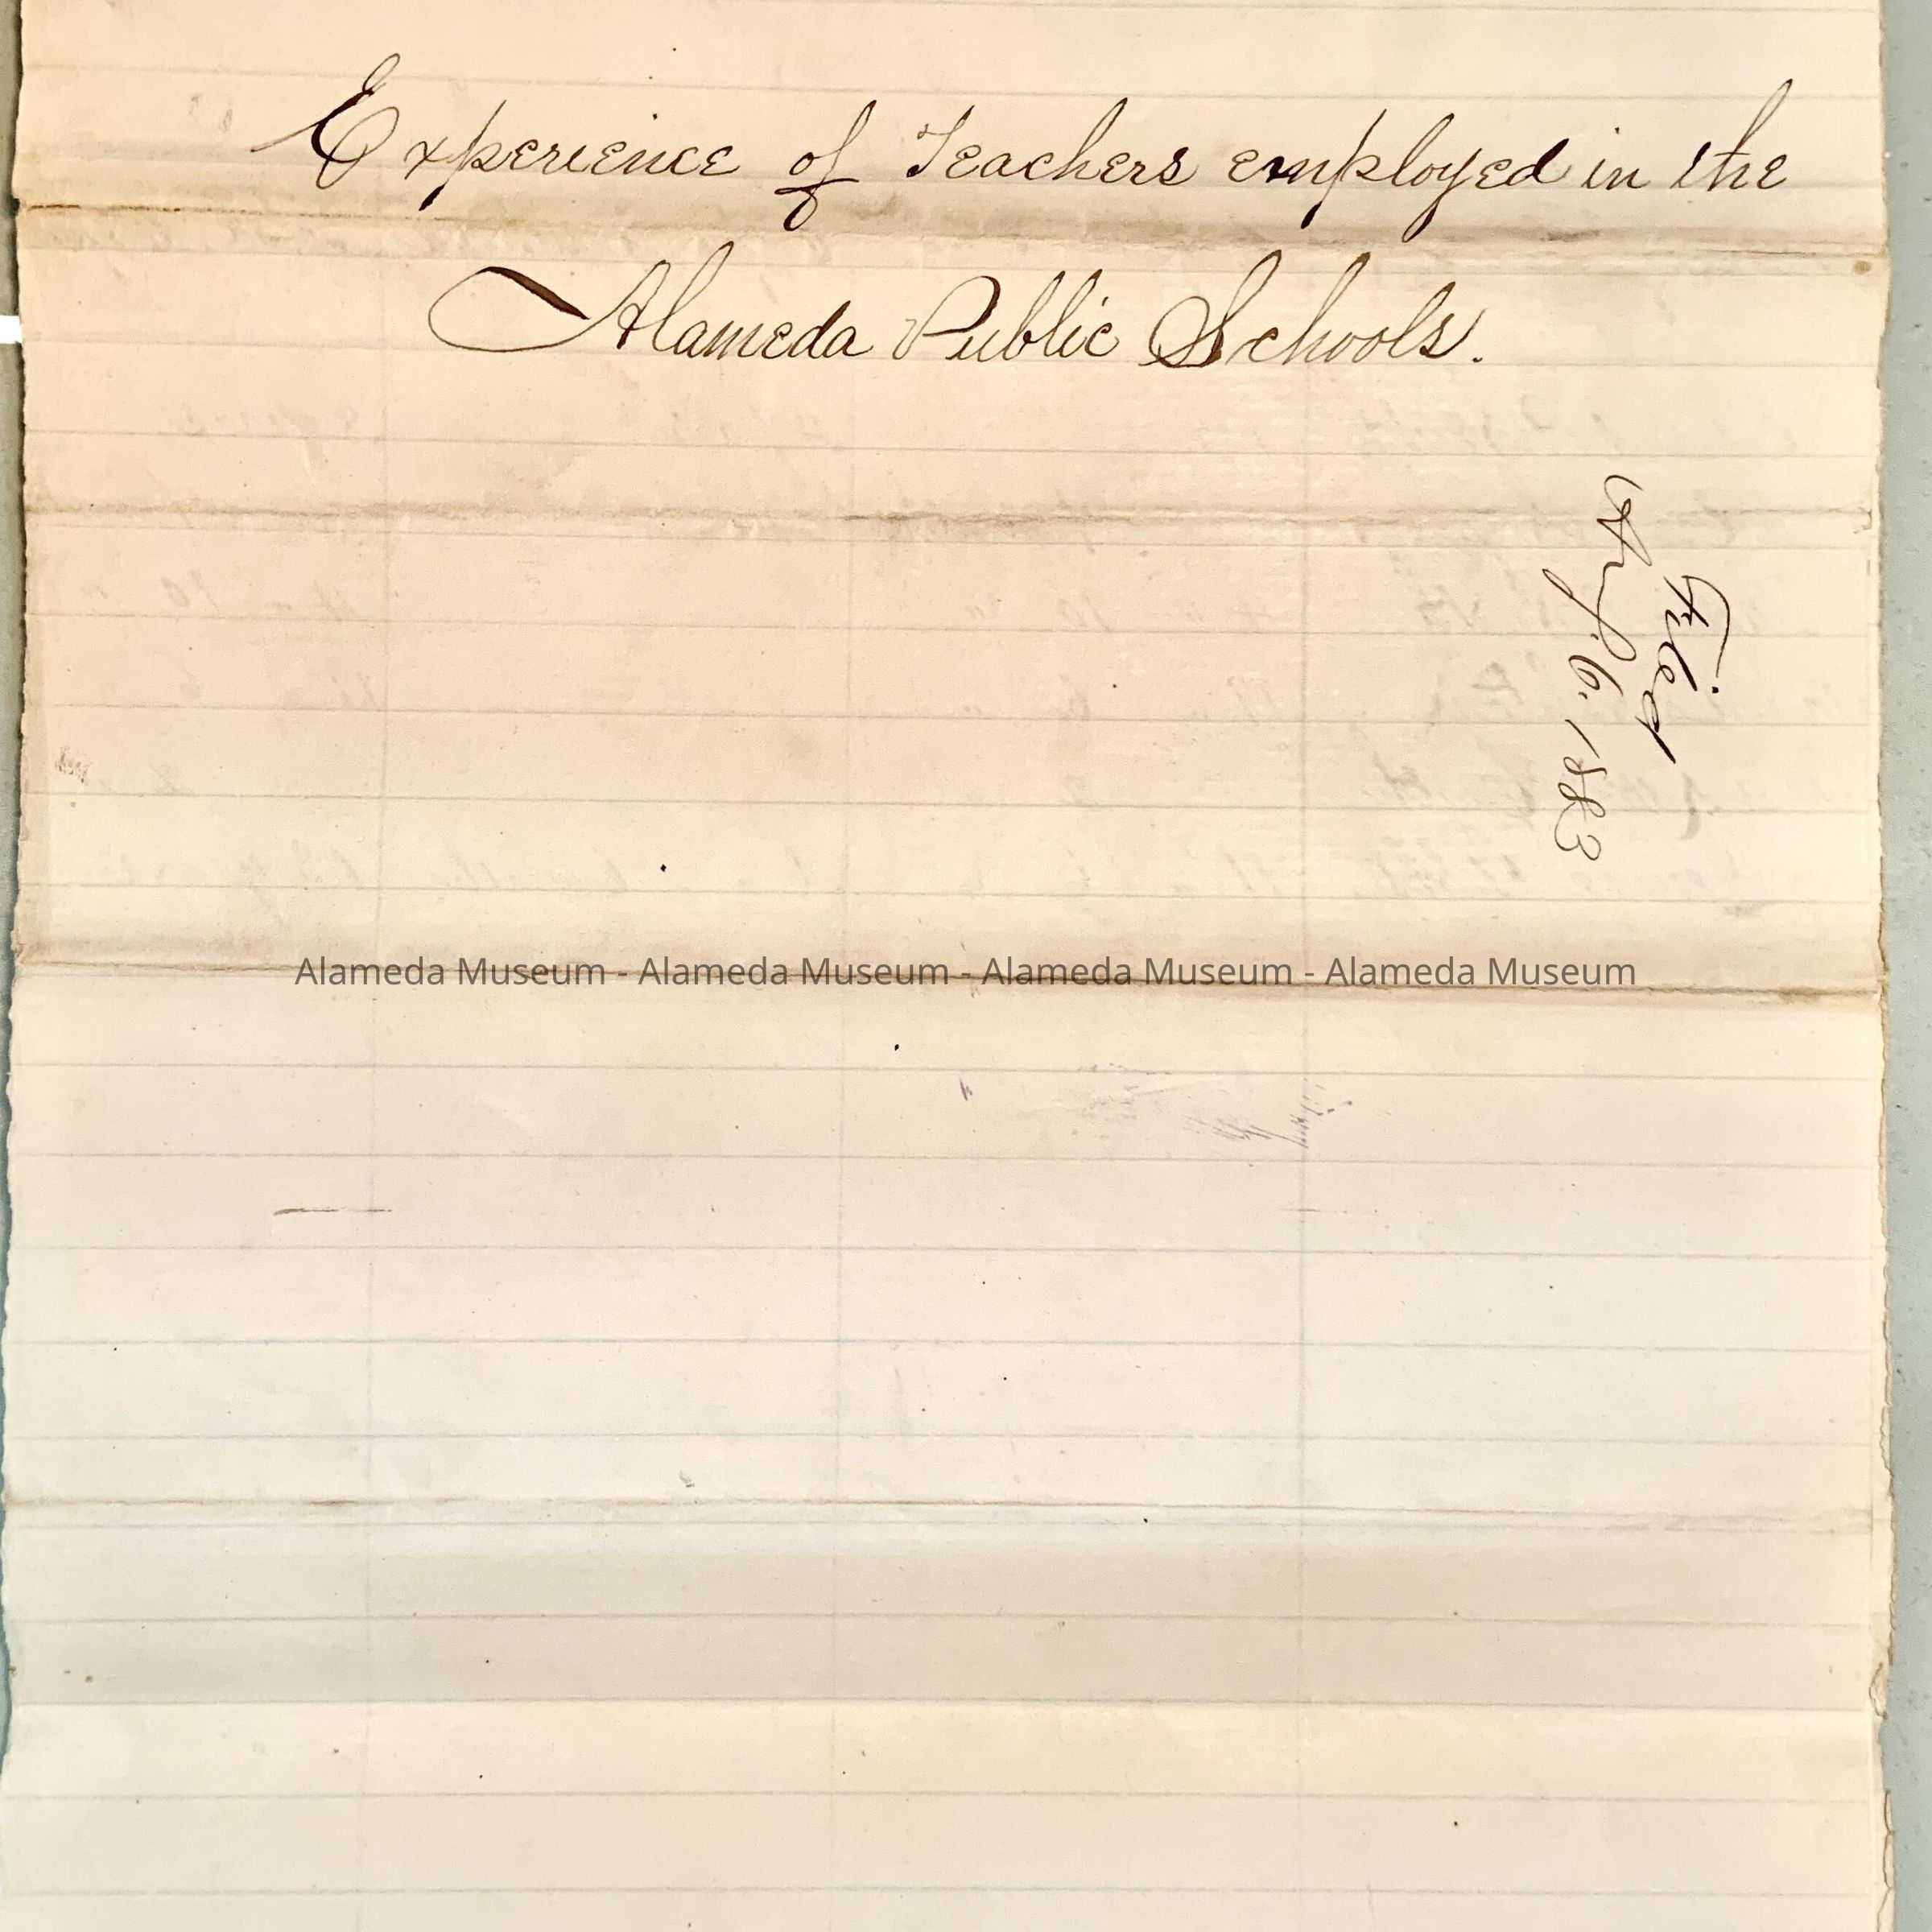 Experience of Teachers employed in the
Alameda Public Schools.
Filed
Aug. 6. 1883
Alameda Museum - Alameda Museum - Alameda Museum - Alameda Museum